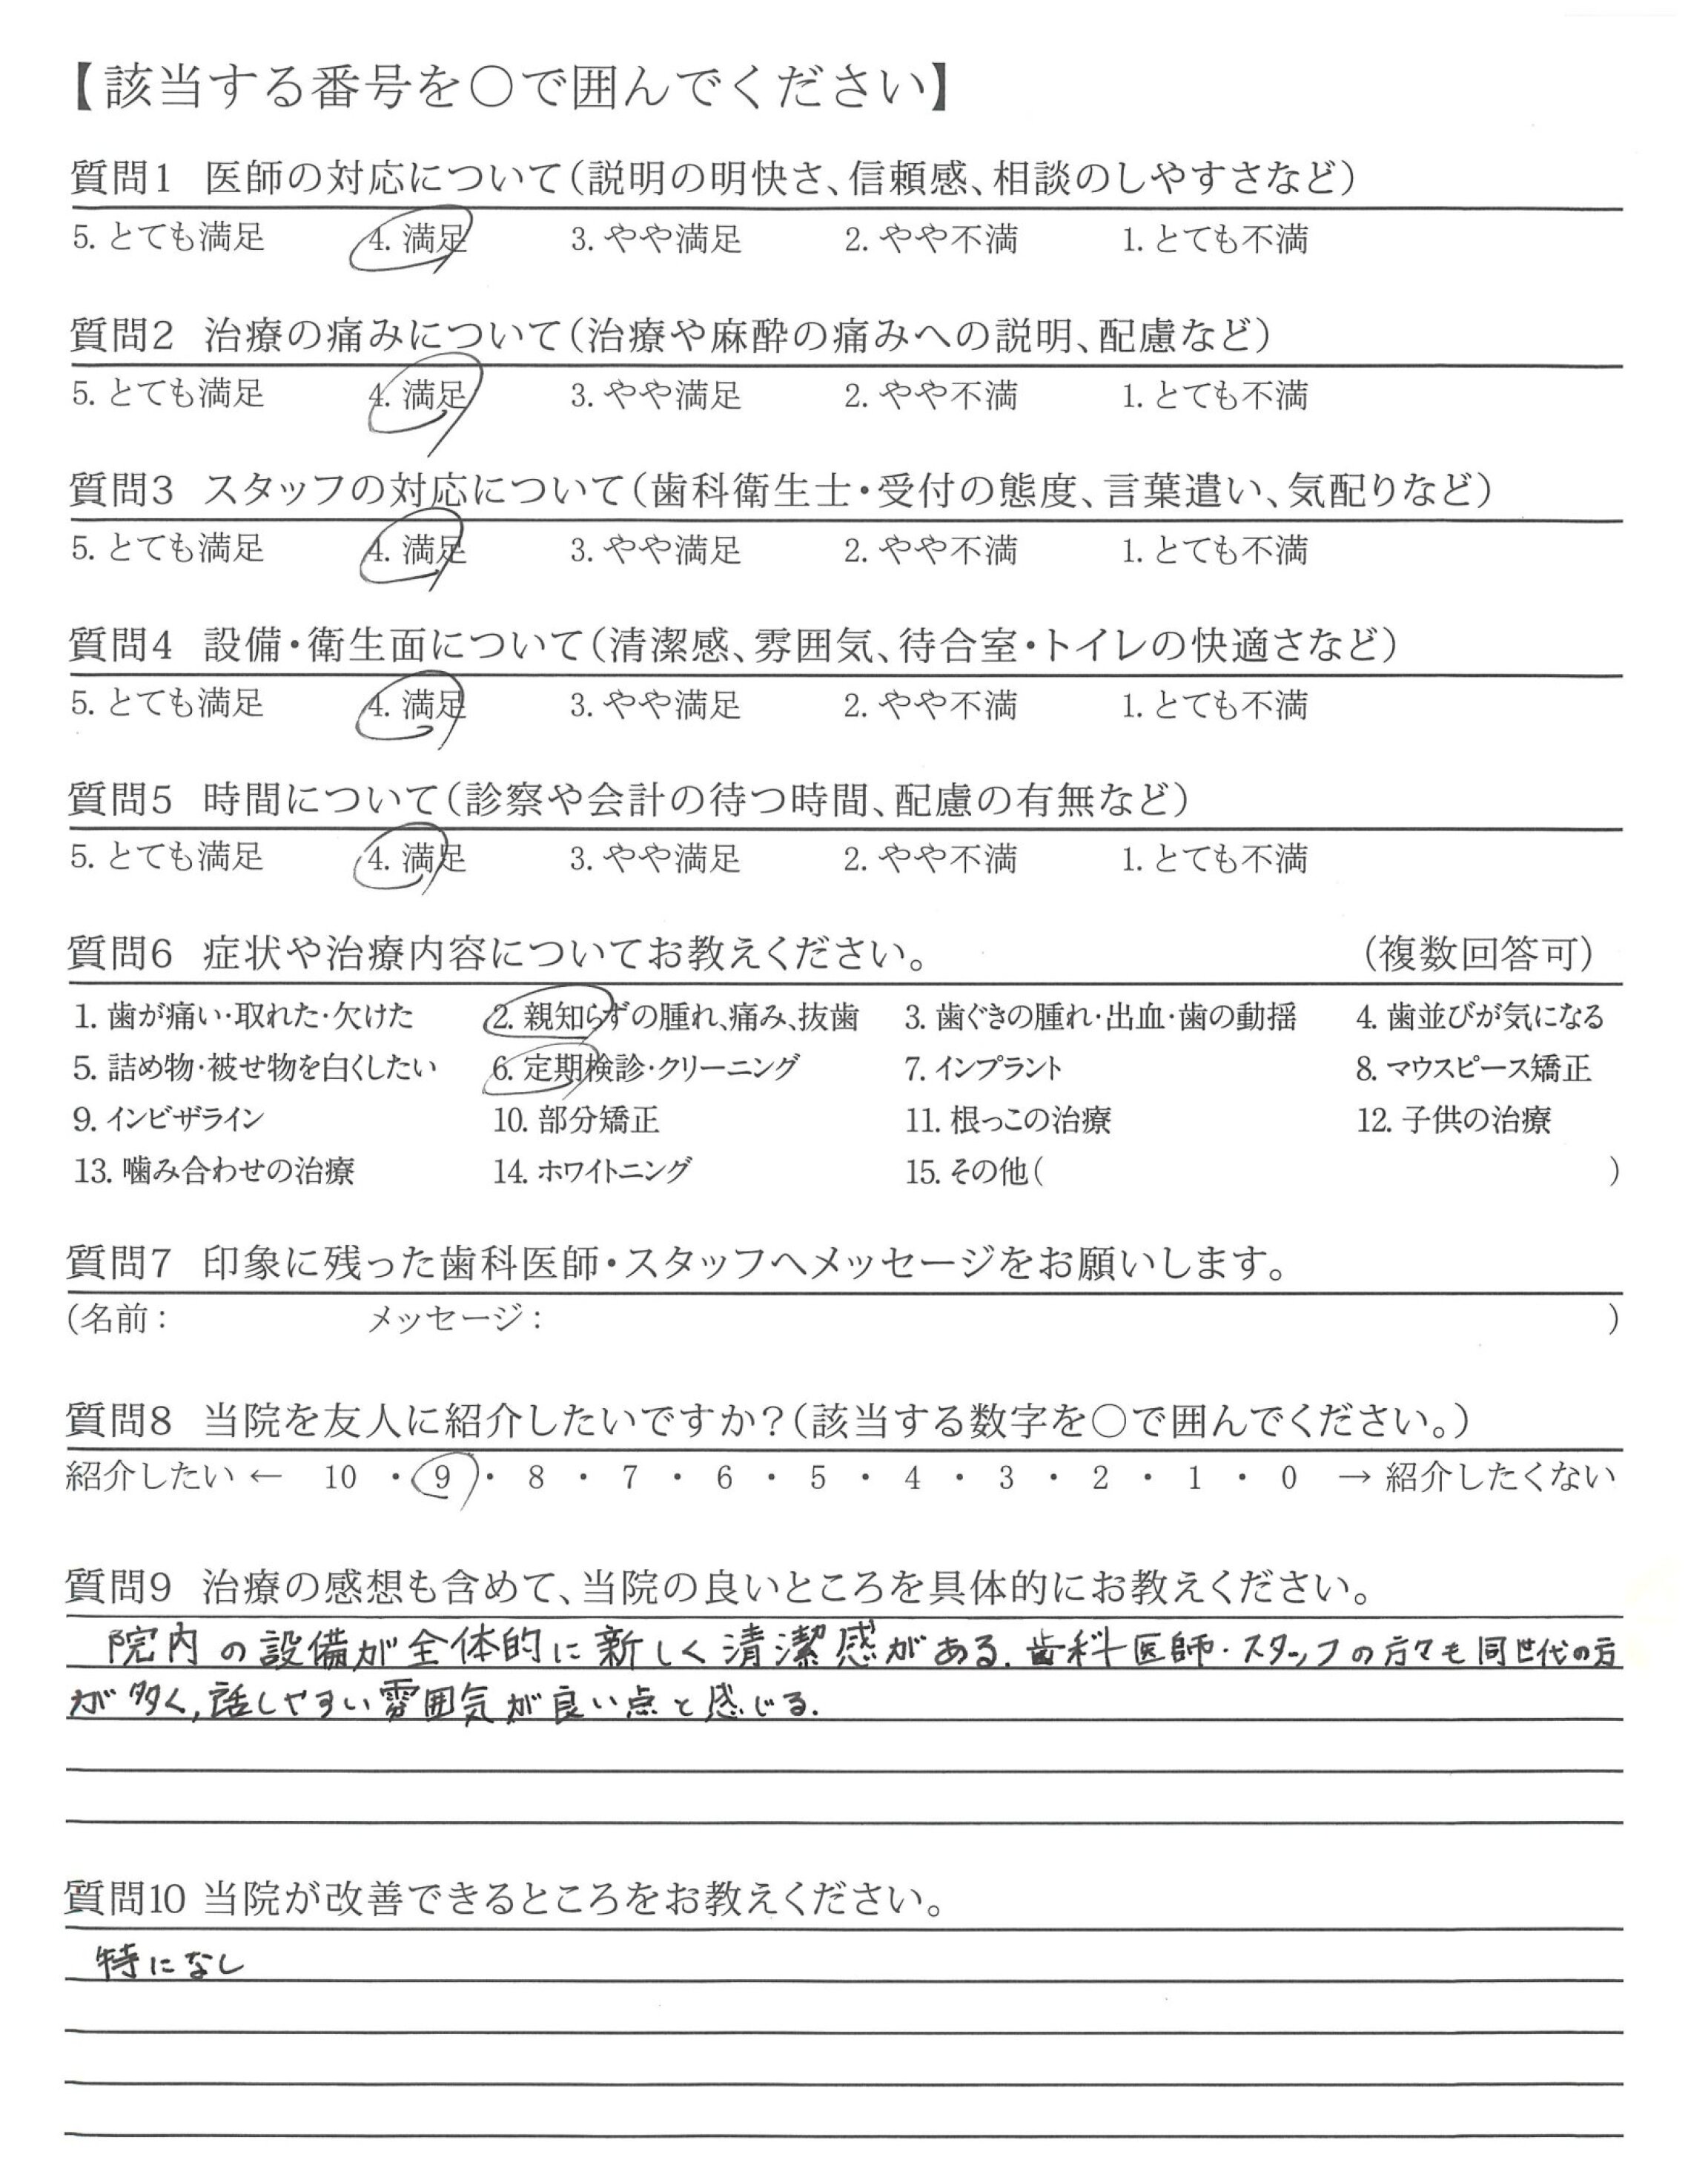 【該当する番号を○で囲んでください】
質問1 医師の対応について（説明の明快さ、信頼感、相談のしやすさなど）
5. とても満足 4. 満足 3. やや満足 2. やや不満 1. とても不満
質問2 治療の痛みについて（治療や麻酔の痛みへの説明、配慮など）
5. とても満足 4. 満足 3. やや満足 2. やや不満 1. とても不満
質問3 スタッフの対応について（歯科衛生士・受付の態度、言葉遣い、気配りなど）
5. とても満足 4. 満足 3. やや満足 2. やや不満 1. とても不満
質問4 設備・衛生面について（清潔感、雰囲気、待合室・トイレの快適さなど）
5. とても満足 4. 満足 3. やや満足 2. やや不満 1. とても不満
質問5 時間について（診察や会計の待つ時間、配慮の有無など）
5. とても満足 4. 満足 3. やや満足 2. やや不満 1. とても不満
質問6 症状や治療内容についてお教えください。 （複数回答可）
1. 歯が痛い・取れた・欠けた 2. 親知らずの腫れ、痛み、抜歯 3. 歯ぐきの腫れ・出血・歯の動揺 4. 歯並びが気になる
5. 詰め物・被せ物を白くしたい 6. 定期検診・クリーニング 7. インプラント 8. マウスピース矯正
9. インビザライン 10. 部分矯正 11. 根っこの治療 12. 子供の治療
13. 噛み合わせの治療 14. ホワイトニング 15. その他（ ）
質問7 印象に残った歯科医師・スタッフへメッセージをお願いします。
（名前： メッセージ： ）
質問8 当院を友人に紹介したいですか？（該当する数字を○で囲んでください。）
紹介したい ← 10 ・ 9 ・ 8 ・ 7 ・ 6 ・ 5 ・ 4 ・ 3 ・ 2 ・ 1 ・ 0 → 紹介したくない
質問9 治療の感想も含めて、当院の良いところを具体的にお教えください。
院内の設備が全体的に新しく清潔感がある. 歯科医師・スタッフの方々も同世代の方
が多く, 話しやすい雰囲気が良い点と感じる.
質問10 当院が改善できるところをお教えください。
特になし